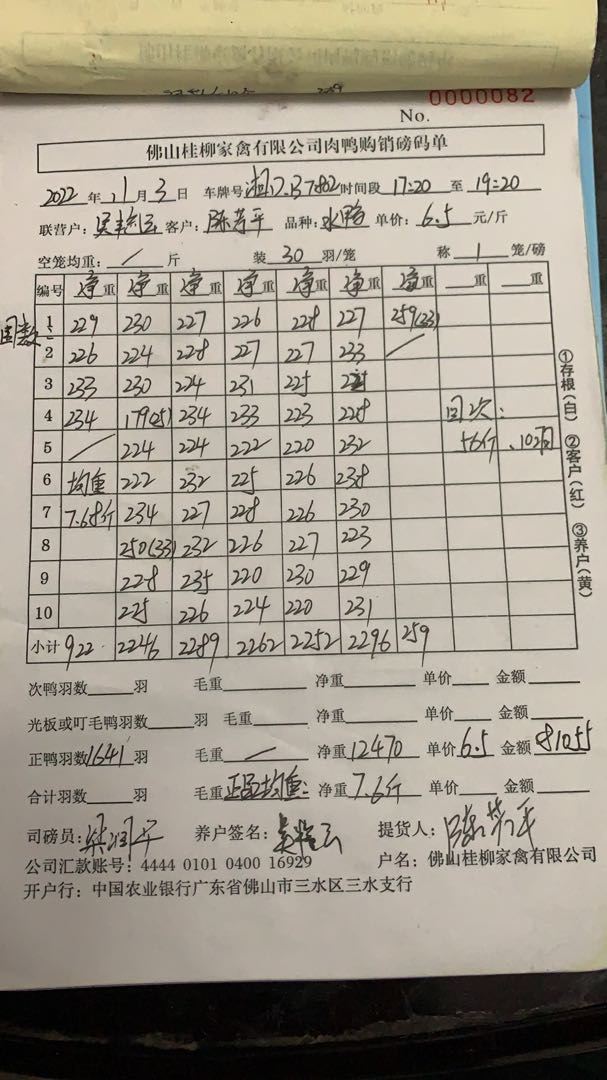 0000082
No.
佛山桂柳家禽有限公司肉鸭购销磅码单
2022 年 11 月 3 日 车牌号 湘D.B7882 时间段 17:20 至 19:20
联营户: 客户: 陈芳平 品种: 水鸭 单价: 6.5 元/斤
空笼均重: / 斤 装 30 羽/笼 称 1 笼/磅
编号 净重 净重 净重 净重 净重 净重 净重 重 重
1 229 230 227 226 228 227 259(33)
2 226 224 228 227 227 233 /
3 233 230 224 231 225 225
4 234 179(25) 234 233 223 228 回次:
5 / 224 224 222 220 232 56斤、10羽
6 均重 222 232 225 226 238
7 7.68斤 234 227 228 226 230
8 250(33) 232 226 227 223
9 228 235 220 230 229
10 225 226 224 220 231
小计 922 2246 2289 2262 2252 2296 259
①存根(白) ②客户(红) ③养户(黄)
次鸭羽数 羽 毛重 净重 单价 金额
光板或叮毛鸭羽数 羽 毛重 净重 单价 金额
正鸭羽数 1641 羽 毛重 / 净重 12470 单价 6.5 金额 81055
合计羽数 羽 毛重 正品均重: 净重 7.6斤 单价 金额
司磅员: 养户签名: 提货人: 陈芳平
公司汇款账号: 4444 0101 0400 16929 户名: 佛山桂柳家禽有限公司
开户行: 中国农业银行广东省佛山市三水区三水支行